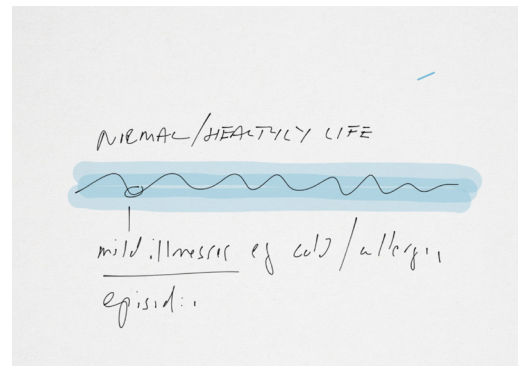 NORMAL/HEALTHLY LIFE
mild illnesses eg cold/allergy
episodic